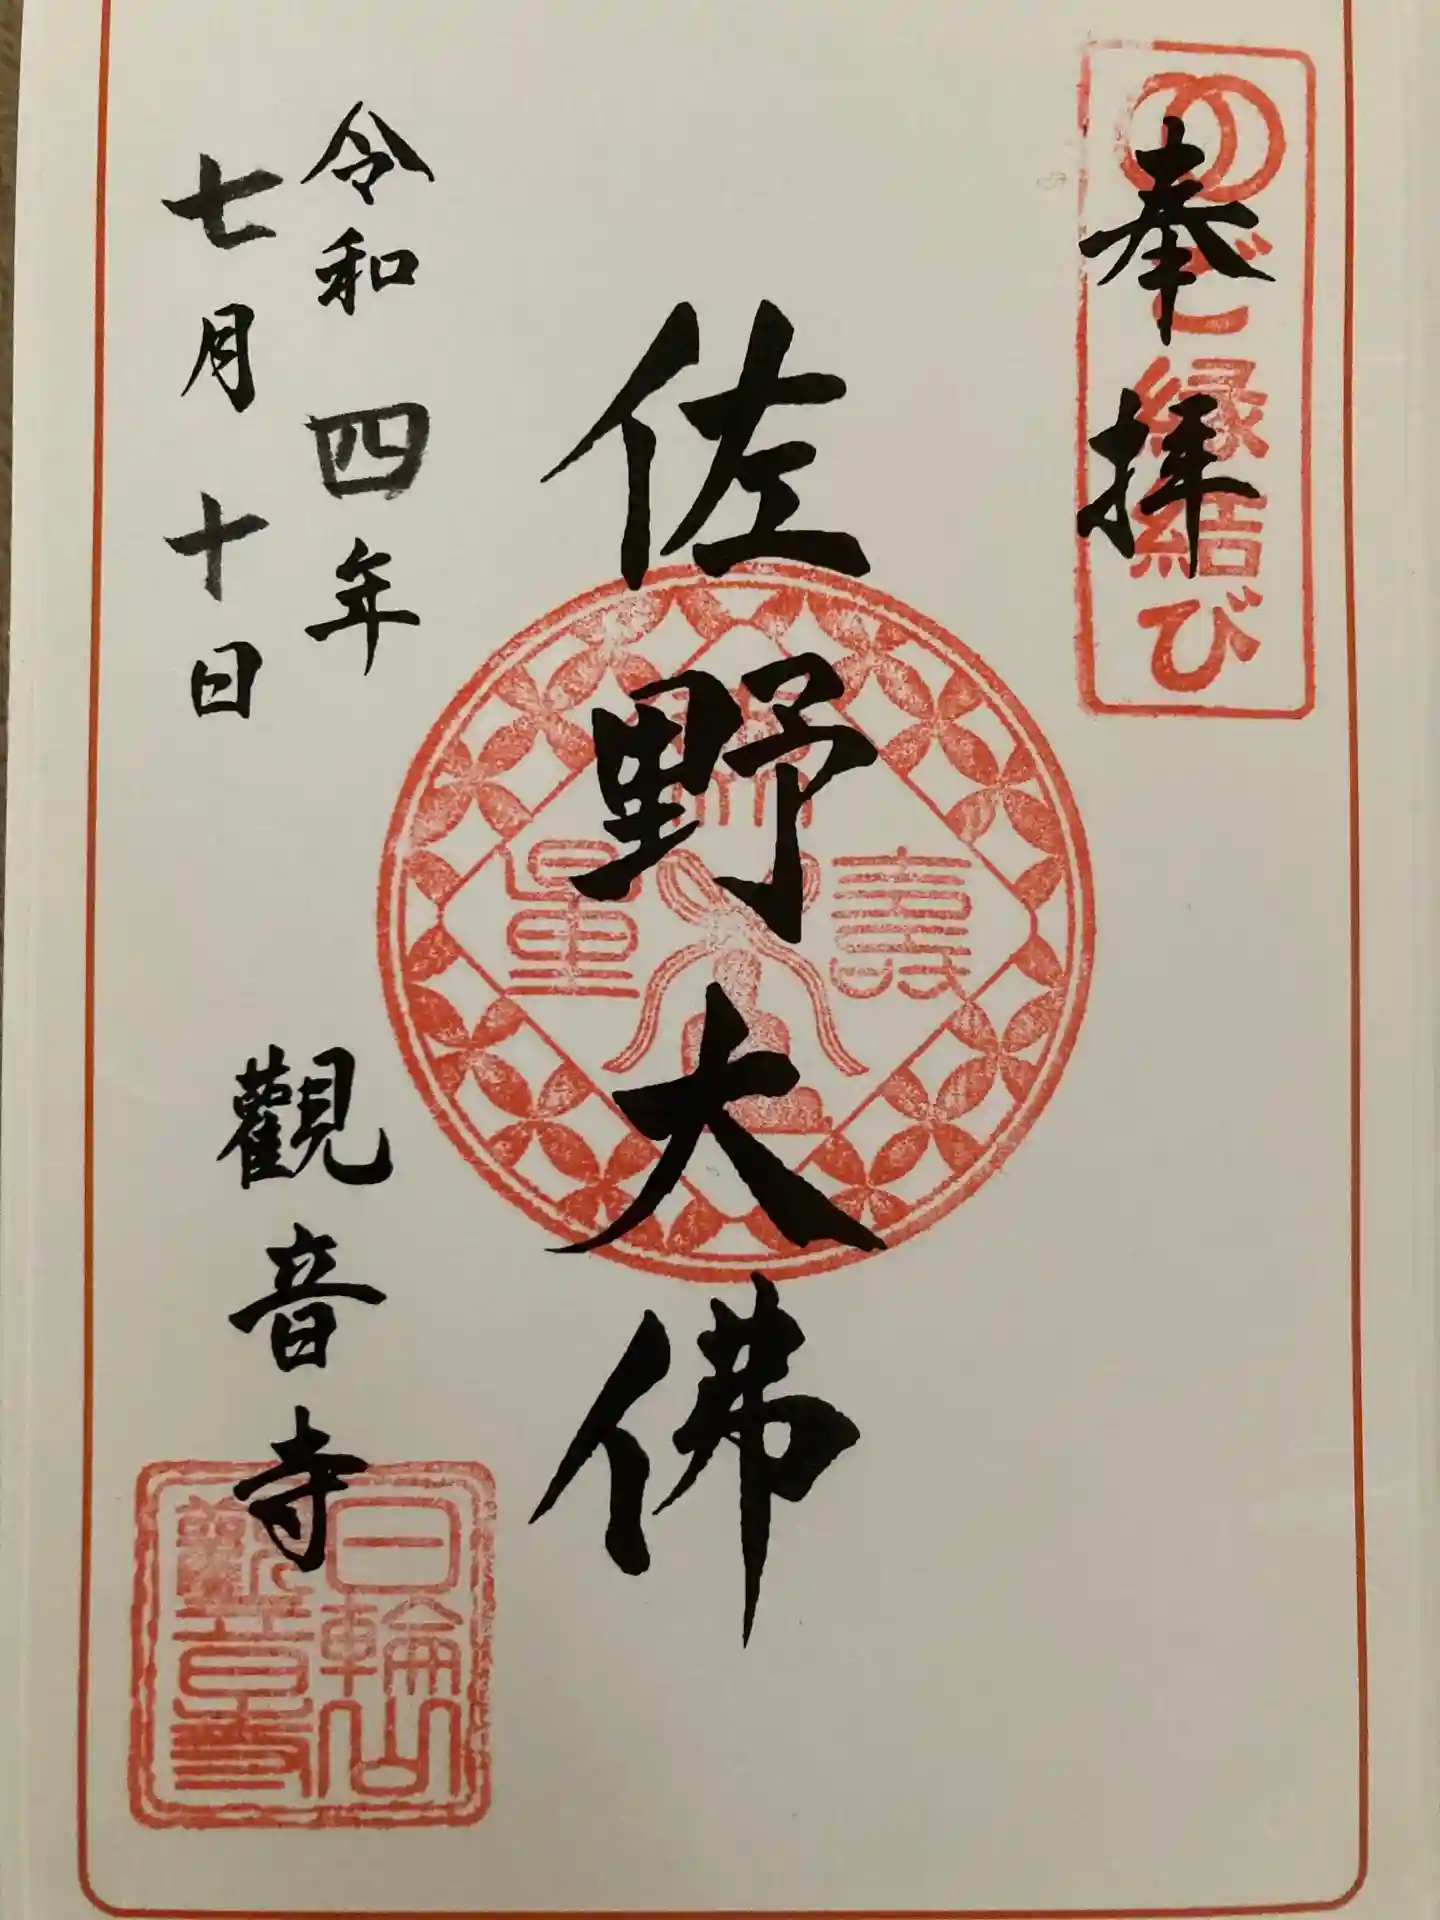 奉拝
ご縁結び
佐野大佛
壽
量
令和四年
七月十日
觀音寺
日輪山
觀音寺